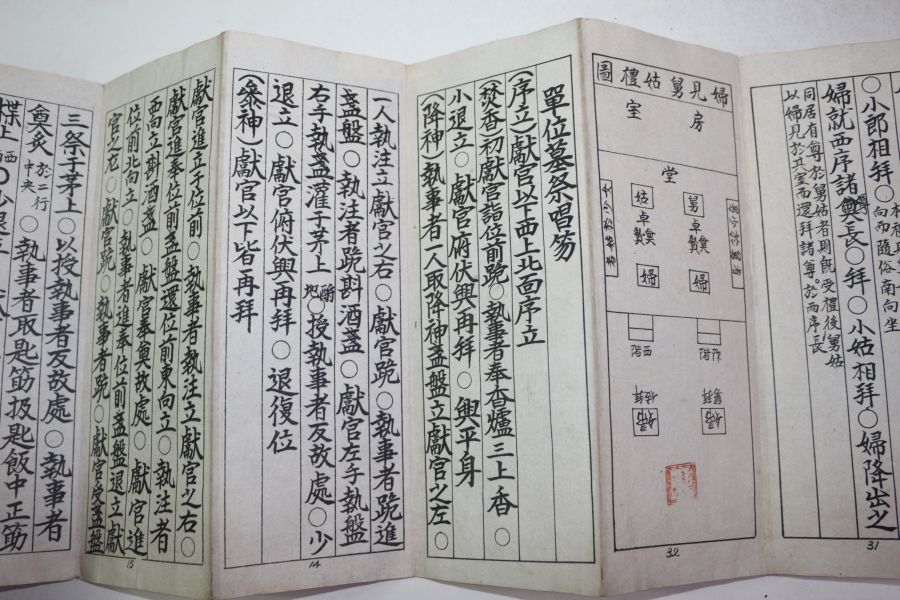 ○小郎相拜○小姑相拜○婦降出之
婦就西序諸尊長○拜
向而隨俗南向坐
同居有尊於舅姑者則旣受禮後舅姑
以婦見於其室而還拜諸尊於兩序長
31
婦見舅姑禮圖
房
室
堂
舅
卓
奠
贄
婦
姑
卓
奠
贄
婦
阼階
西階
32
單位墓祭唱笏
(序立)獻官以下西上北面序立
(焚香)初獻官詣位前跪○執事者奉香爐三上香○
小退立○獻官俯伏興再拜○興平身
(降神)執事者一人取降神盞盤立獻官之左○
一人執注立獻官之右○獻官跪○執事者跪進
盞盤○執注者跪斟酒盞○獻官左手執盤
右手執盞灌于茅上 酹地○授執事者反故處○少
退立○獻官俯伏興再拜○退復位
(參神)獻官以下皆再拜
14
獻官進立于位前○執事者執注立獻官之右○
獻官進奉位前盞盤還位前東向立○執注者
西向立斟酒盞○獻官奉奠故處○獻官進
位前北向立○執事者進奉位前盞盤退立獻
官之左○獻官跪○執事者跪○獻官受盞盤
15
三祭于茅上○以授執事者反故處○執事者
奠炙 於二行中央○執事者取匙筯扱匙飯中正筯
楪上